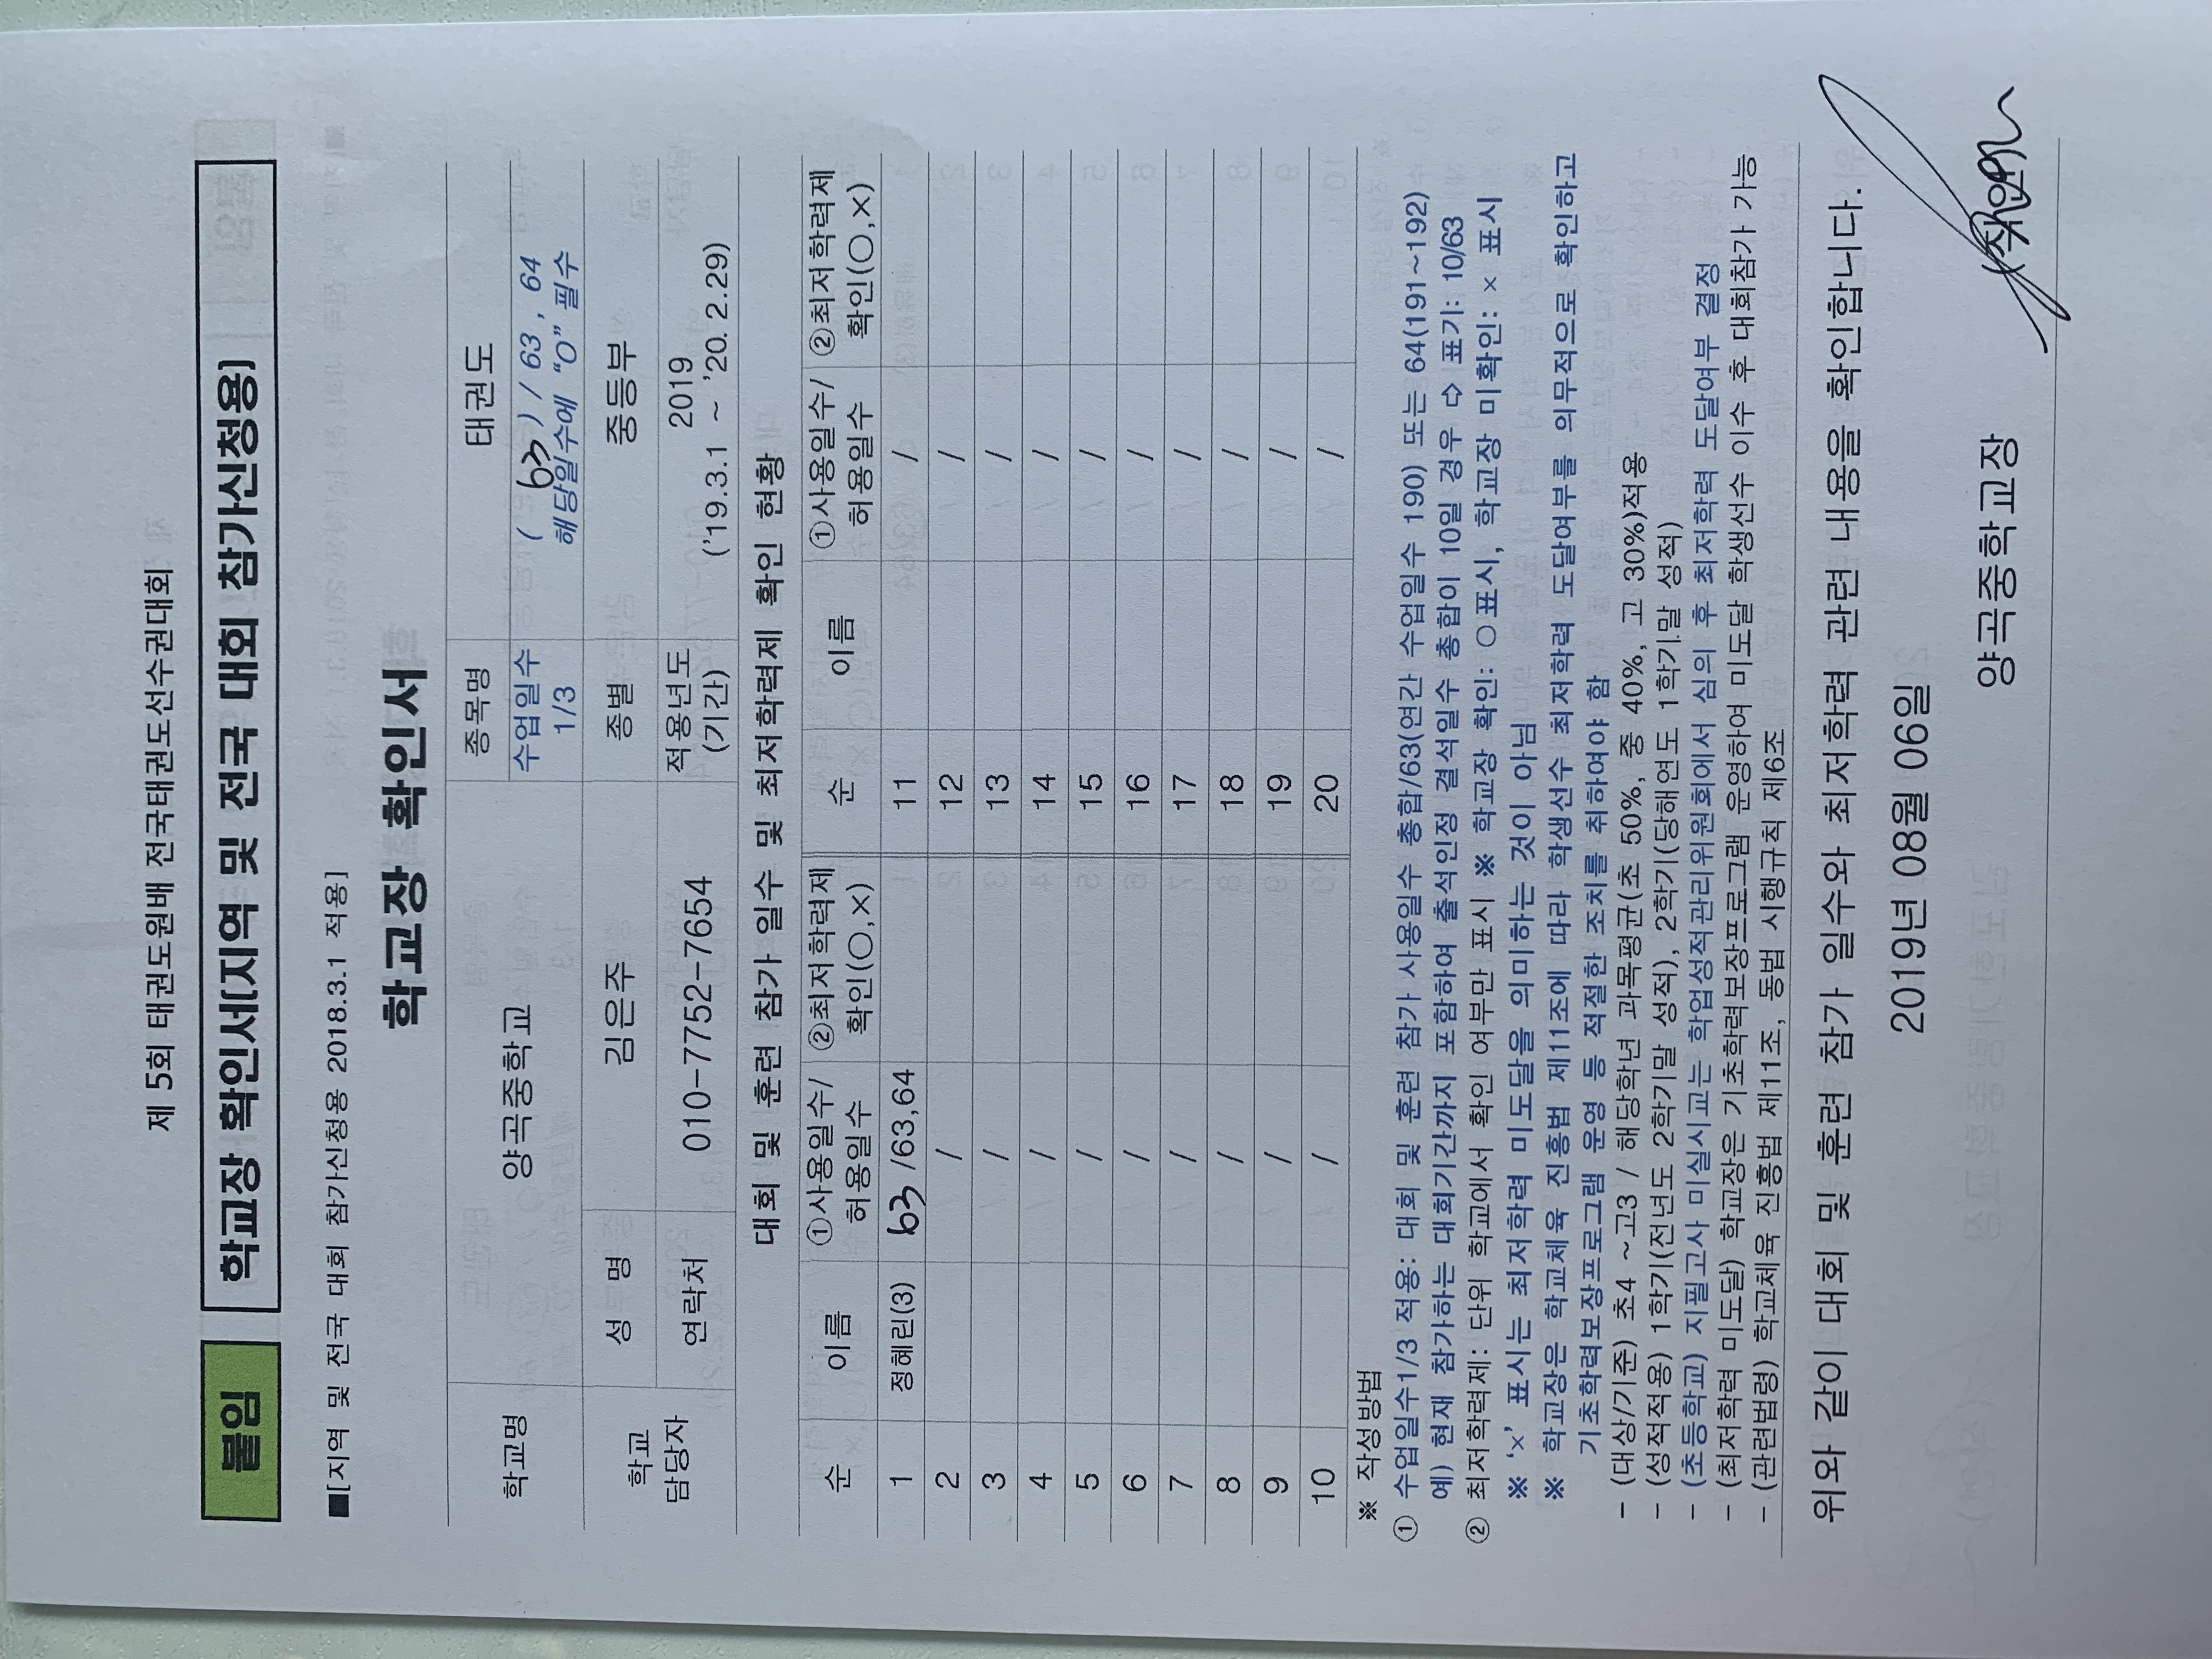 제 5회 태권도원배 전국태권도선수권대회
붙임 학교장 확인서[지역 및 전국 대회 참가신청용]
■[지역 및 전국 대회 참가신청용 2018.3.1 적용]
학교장 확인서
학교명 양곡중학교 종목명 태권도
수업일수 1/3 ( 63 ) / 63 , 64
해당일수에 “O” 필수
학교 담당자 성 명 김은주 종별 중등부
연락처 010-7752-7654 적용년도 (기간) 2019
('19.3.1 ~ '20. 2.29)
대회 및 훈련 참가 일수 및 최저학력제 확인 현황
순 이름 ①사용일수/ 허용일수 ②최저학력제 확인(○,×) 순 이름 ①사용일수/ 허용일수 ②최저학력제 확인(○,×)
1 정혜린(3) 63 /63,64 11 /
2 / 12 /
3 / 13 /
4 / 14 /
5 / 15 /
6 / 16 /
7 / 17 /
8 / 18 /
9 / 19 /
10 / 20 /
※ 작성방법
① 수업일수1/3 적용: 대회 및 훈련 참가 사용일수 총합/63(연간 수업일수 190) 또는 64(191~192)
예) 현재 참가하는 대회기간까지 포함하여 출석인정 결석일수 총합이 10일 경우 ⇨ 표기: 10/63
② 최저학력제: 단위 학교에서 확인 여부만 표시 ※ 학교장 확인: ○표시, 학교장 미확인: × 표시
※ ‘×’ 표시는 최저학력 미도달을 의미하는 것이 아님
※ 학교장은 학교체육 진흥법 제11조에 따라 학생선수 최저학력 도달여부를 의무적으로 확인하고
기초학력보장프로그램 운영 등 적절한 조치를 취하여야 함
- (대상/기준) 초4 ~고3 / 해당학년 과목평균(초 50%, 중 40%, 고 30%)적용
- (성적적용) 1학기(전년도 2학기말 성적), 2학기(당해연도 1학기말 성적)
- (초등학교) 지필고사 미실시교는 학업성적관리위원회에서 심의 후 최저학력 도달여부 결정
- (최저학력 미도달) 학교장은 기초학력보장프로그램 운영하여 미도달 학생선수 이수 후 대회참가 가능
- (관련법령) 학교체육 진흥법 제11조, 동법 시행규칙 제6조
위와 같이 대회 및 훈련 참가 일수와 최저학력 관련 내용을 확인합니다.
2019년 08월 06일
양곡중학교장